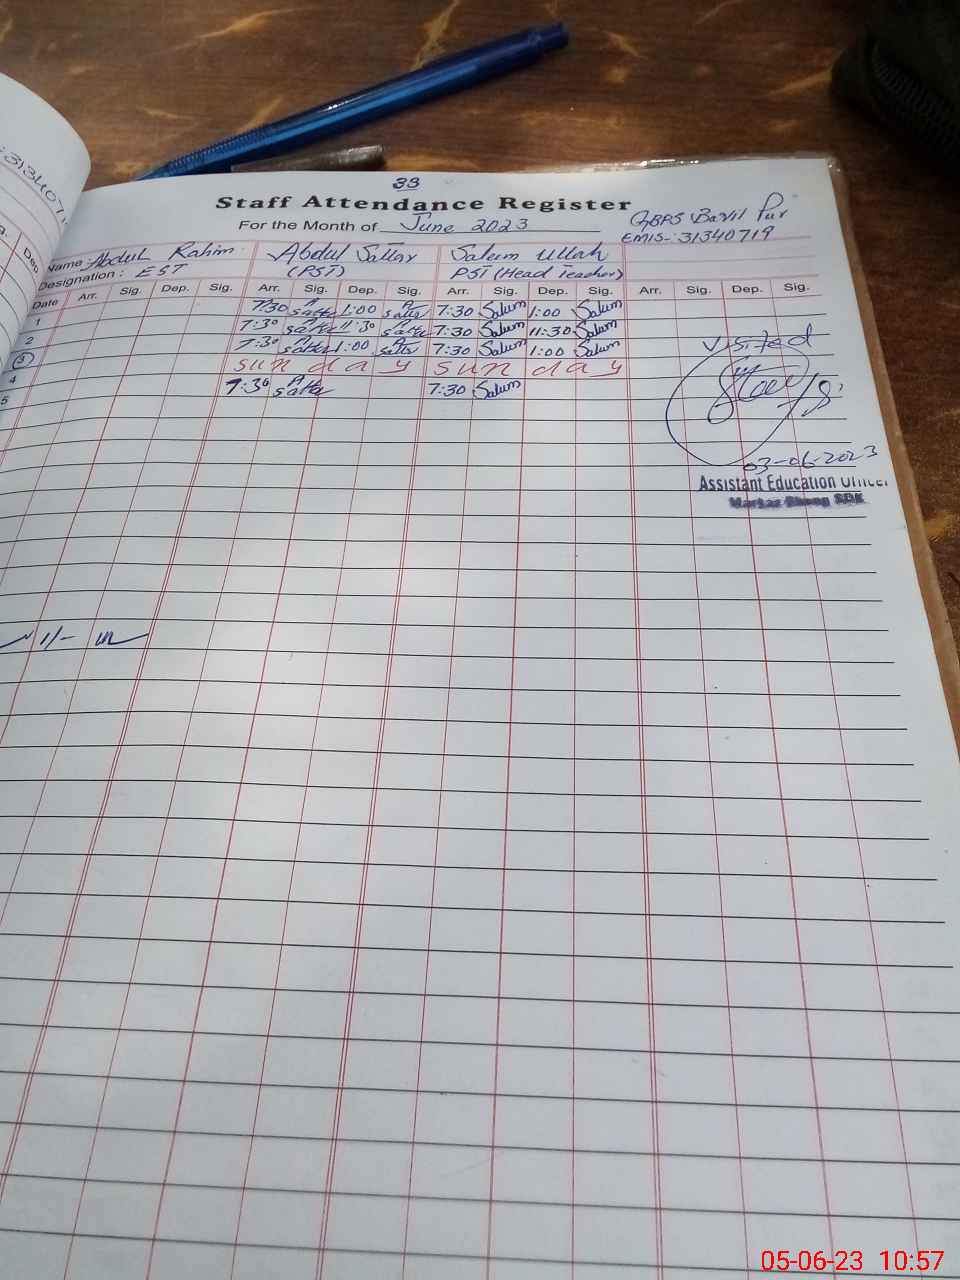 33
Staff Attendance Register
For the Month of June 2023
GBPS Bavil Pur
EMIS-:31340719
Name: Abdul Rahim Abdul Sattar Salum Ullah
Designation: EST (PST) PST (Head Teacher)
Date Arr. Sig. Dep. Sig. Arr. Sig. Dep. Sig. Arr. Sig. Dep. Sig. Arr. Sig. Dep. Sig.
1 7:30 A Satter 1:00 A Satter 7:30 Salum 1:00 Salum
2 7:30 A Satter 11:30 A Satter 7:30 Salum 11:30 Salum
3 7:30 A Satter 1:00 A Satter 7:30 Salum 1:00 Salum
4 Sunday Sunday
5 7:30 A Satter 7:30 Salum
Visited
03-06-2023
Assistant Education Officer
Markaz SDK
05-06-23 10:57